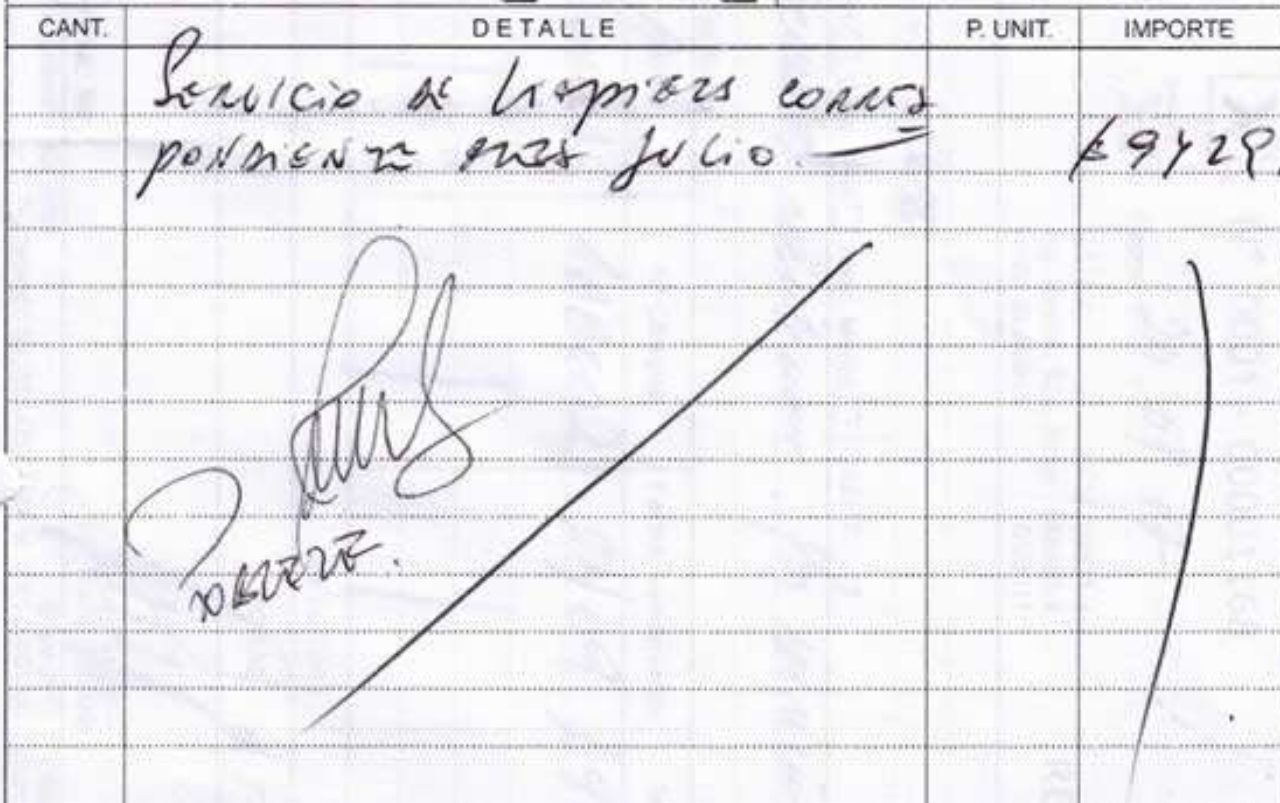 CANT. DETALLE P. UNIT. IMPORTE
Servicio de limpieza corres
pondiente mes julio.